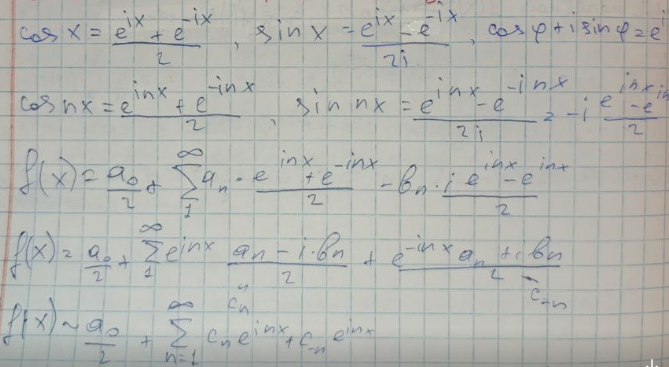 cos x = (e^{ix} + e^{-ix})/2, sin x = (e^{ix} - e^{-ix})/2i, cos φ + i sin φ = e
cos nx = (e^{inx} + e^{-inx})/2, sin nx = (e^{inx} - e^{-inx})/2i = -i (e^{inx} - e^{-in})/2
f(x) = a_0/2 + ∑_{1}^{∞} a_n · (e^{inx} + e^{-inx})/2 - b_n · i (e^{inx} - e^{inx})/2
f(x) = a_0/2 + ∑_{1}^{∞} e^{inx} (a_n - i · b_n)/2 + e^{-inx} (a_n + i b_n)/2
c_n c_{-n}
f(x) ~ a_0/2 + ∑_{n=1}^{∞} c_n e^{inx} + c_{-n} e^{inx}